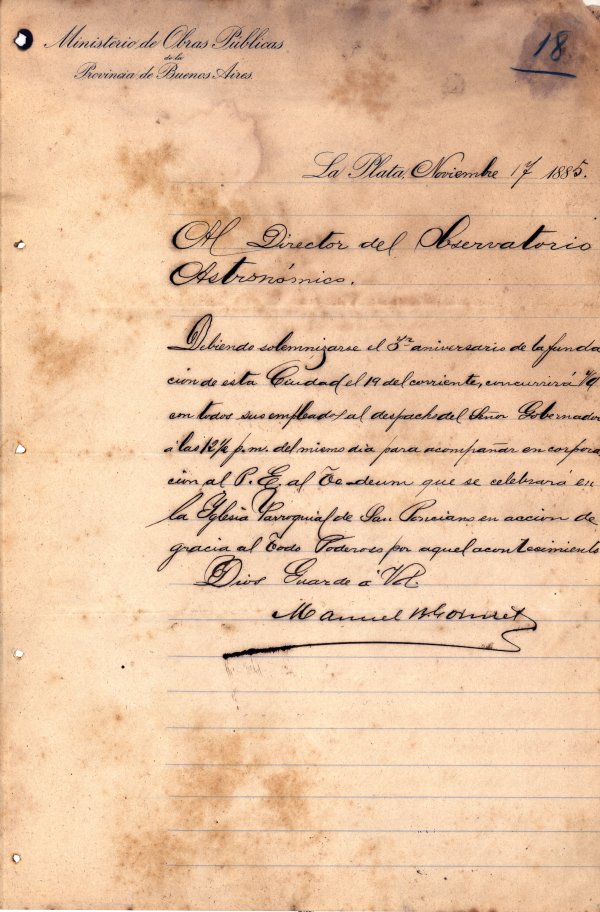 Ministerio de Obras Públicas
de la
Provincia de Buenos Aires.
18
La Plata, Noviembre 17 1885.
Al Director del Observatorio
Astronómico.
Debiendo solemnizarse el 3er aniversario de la funda
ción de esta Ciudad el 19 del corriente, concurrirá Vd
con todos sus empleados al despacho del Señor Gobernador
á las 12½ p.m. del mismo dia para acompañar en corpora
ción al P. E. al Te-deum que se celebrará en
la Yglesia Parroquial de San Ponciano en acción de
gracia al Todo Poderoso por aquel acontecimiento
Dios Guarde á Vd.
Manuel B. Gonnet